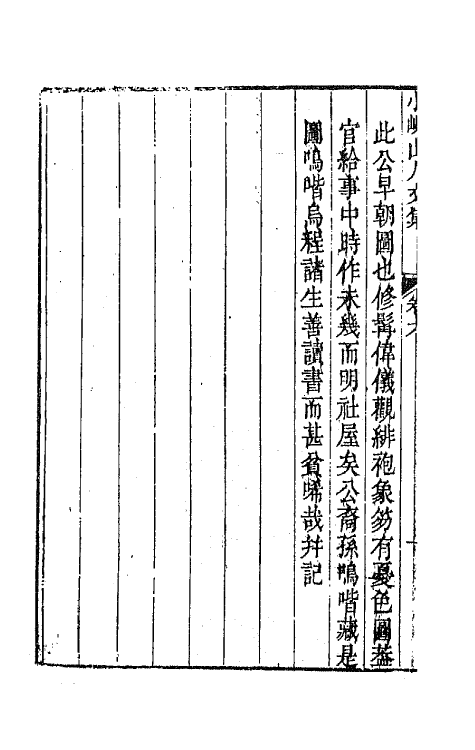 小峴山人文集
卷六
此公早朝圖也修髯偉儀觀緋袍象笏有憂色圖葢
官給事中時作未幾而明社屋矣公裔孫鳴喈藏是
圖鳴喈烏程諸生善讀書而甚貧晞哉幷記